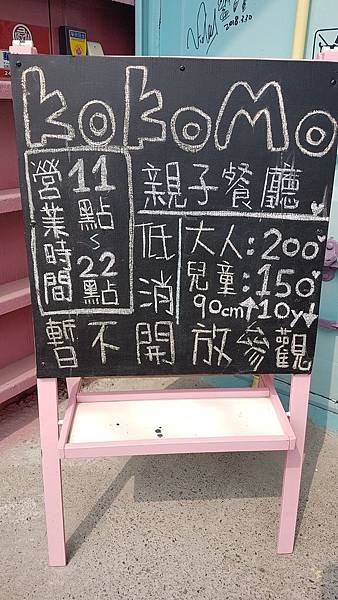 KoKoMo
營業時間
11點~22點
親子餐廳
低消
大人:200
兒童:150
90cm↑10y↓
暫不開放參觀
2018.3.20